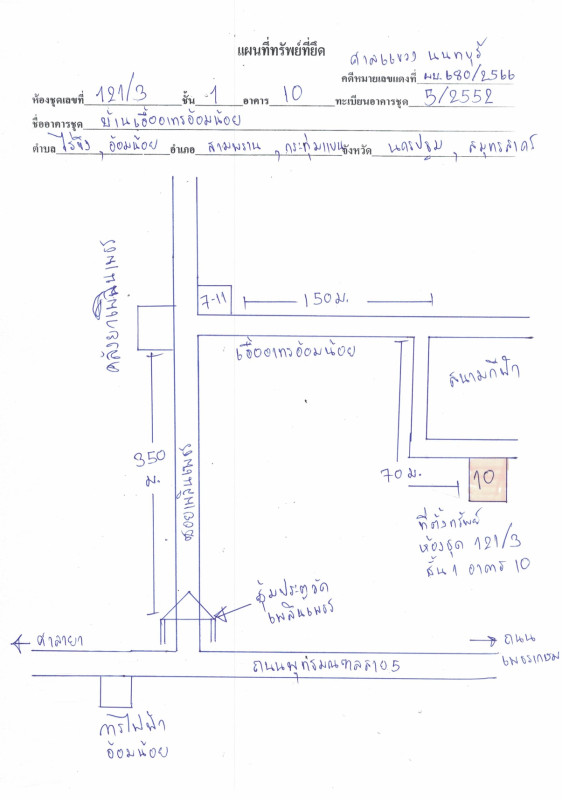 แผนที่ทรัพย์ที่ยึด
ศาลแขวง นนทบุรี
คดีหมายเลขแดงที่ ผบ.680/2566
ห้องชุดเลขที่ 121/3 ชั้น 1 อาคาร 10 ทะเบียนอาคารชุด 5/2552
ชื่ออาคารชุด บ้านเอื้ออาทรอ้อมน้อย
ตำบล ไร่ขิง, อ้อมน้อย อำเภอ สามพราน, กระทุ่มแบน จังหวัด นครปฐม, สมุทรสาคร
คลังยาเพลินเพชร
7-11
150 ม.
เอื้ออาทรอ้อมน้อย
สนามกีฬา
350
ม.
ซอยเพลินเพชร
70 ม.
10
ที่ตั้งทรัพย์
ห้องชุด 121/3
ชั้น 1 อาคาร 10
ซุ้มประตูวัด
เพลินเพชร
ศาลายา
ถนน
เพชรเกษม
ถนนพุทธมณฑลสาย5
การไฟฟ้า
อ้อมน้อย